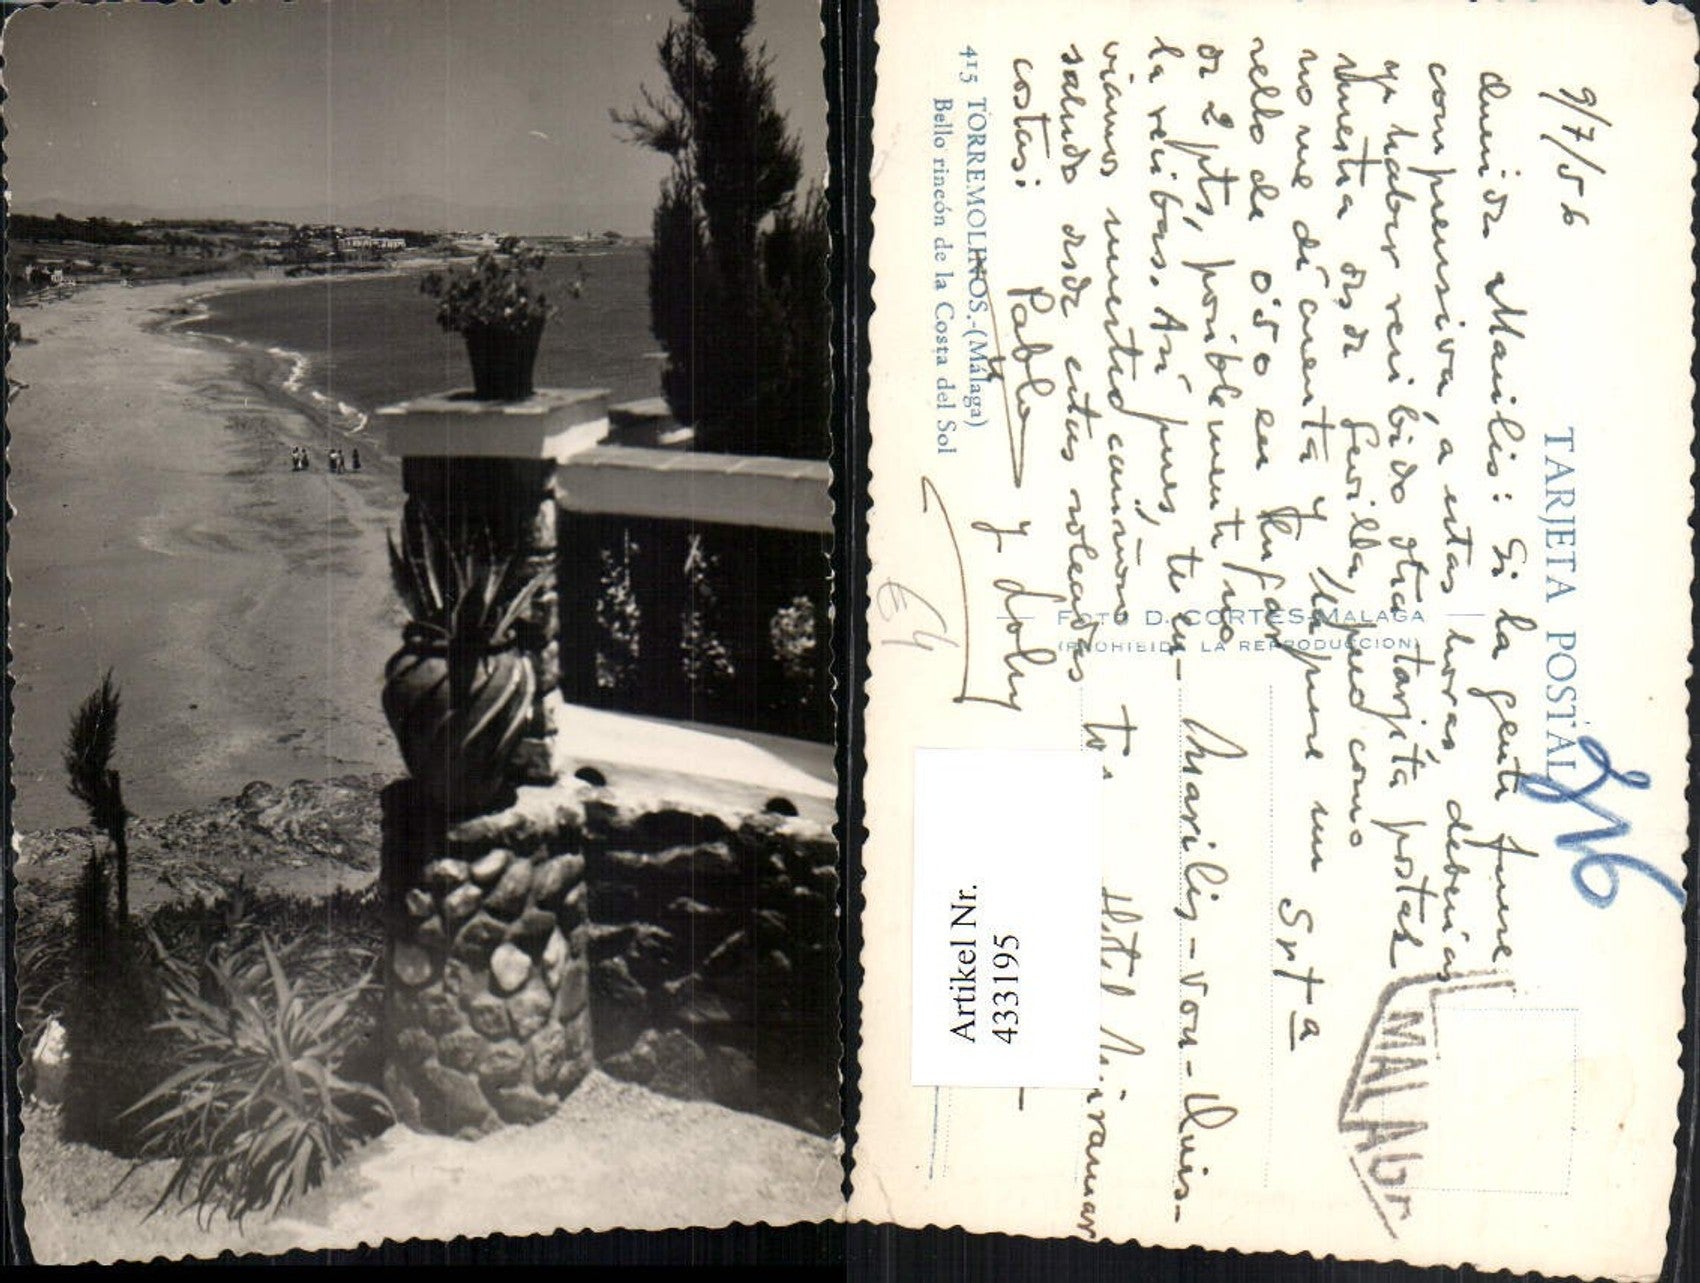 TARJETA POSTAL
9/7/56
Querida Marilis: Si la gente fuese
comprensiva, a estas horas deberías
ya haber recibido otra tarjeta postal
nuestra desde Sevilla, pero como
no me dí cuenta y le puse un
sello de 0'50 en lugar
de 2 pts, posiblemente no
la recibas. Así pues, te en-
viamos nuestro cariñoso
saludo desde estas soleadas
costas:
Pablo y Loly
415 TORREMOLINOS.-(Málaga)
Bello rincón de la Costa del Sol
FOTO D. CORTES-MALAGA
(PROHIBIDA LA REPRODUCCION)
Srtª
Marilis-von-Quis-
Hotel Miramar
MALAGA
Artikel Nr.
433195